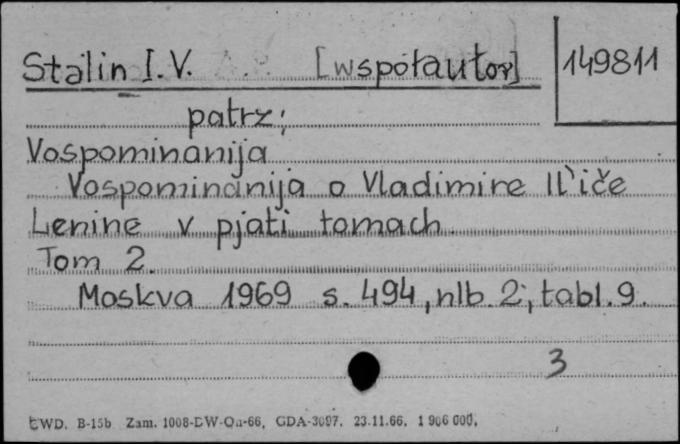 Stalin I. V. [współautor]
149811
patrz:
Vospominanija
Vospominanija o Vladimire Il'iče
Lenine v pjati tomach.
Tom 2.
Moskva 1969 s. 494, nlb. 2, tabl. 9.
3
CWD. B-15b Zam. 1008-DW-Oa-66, GDA-3097. 23.11.66. 1 906 000.